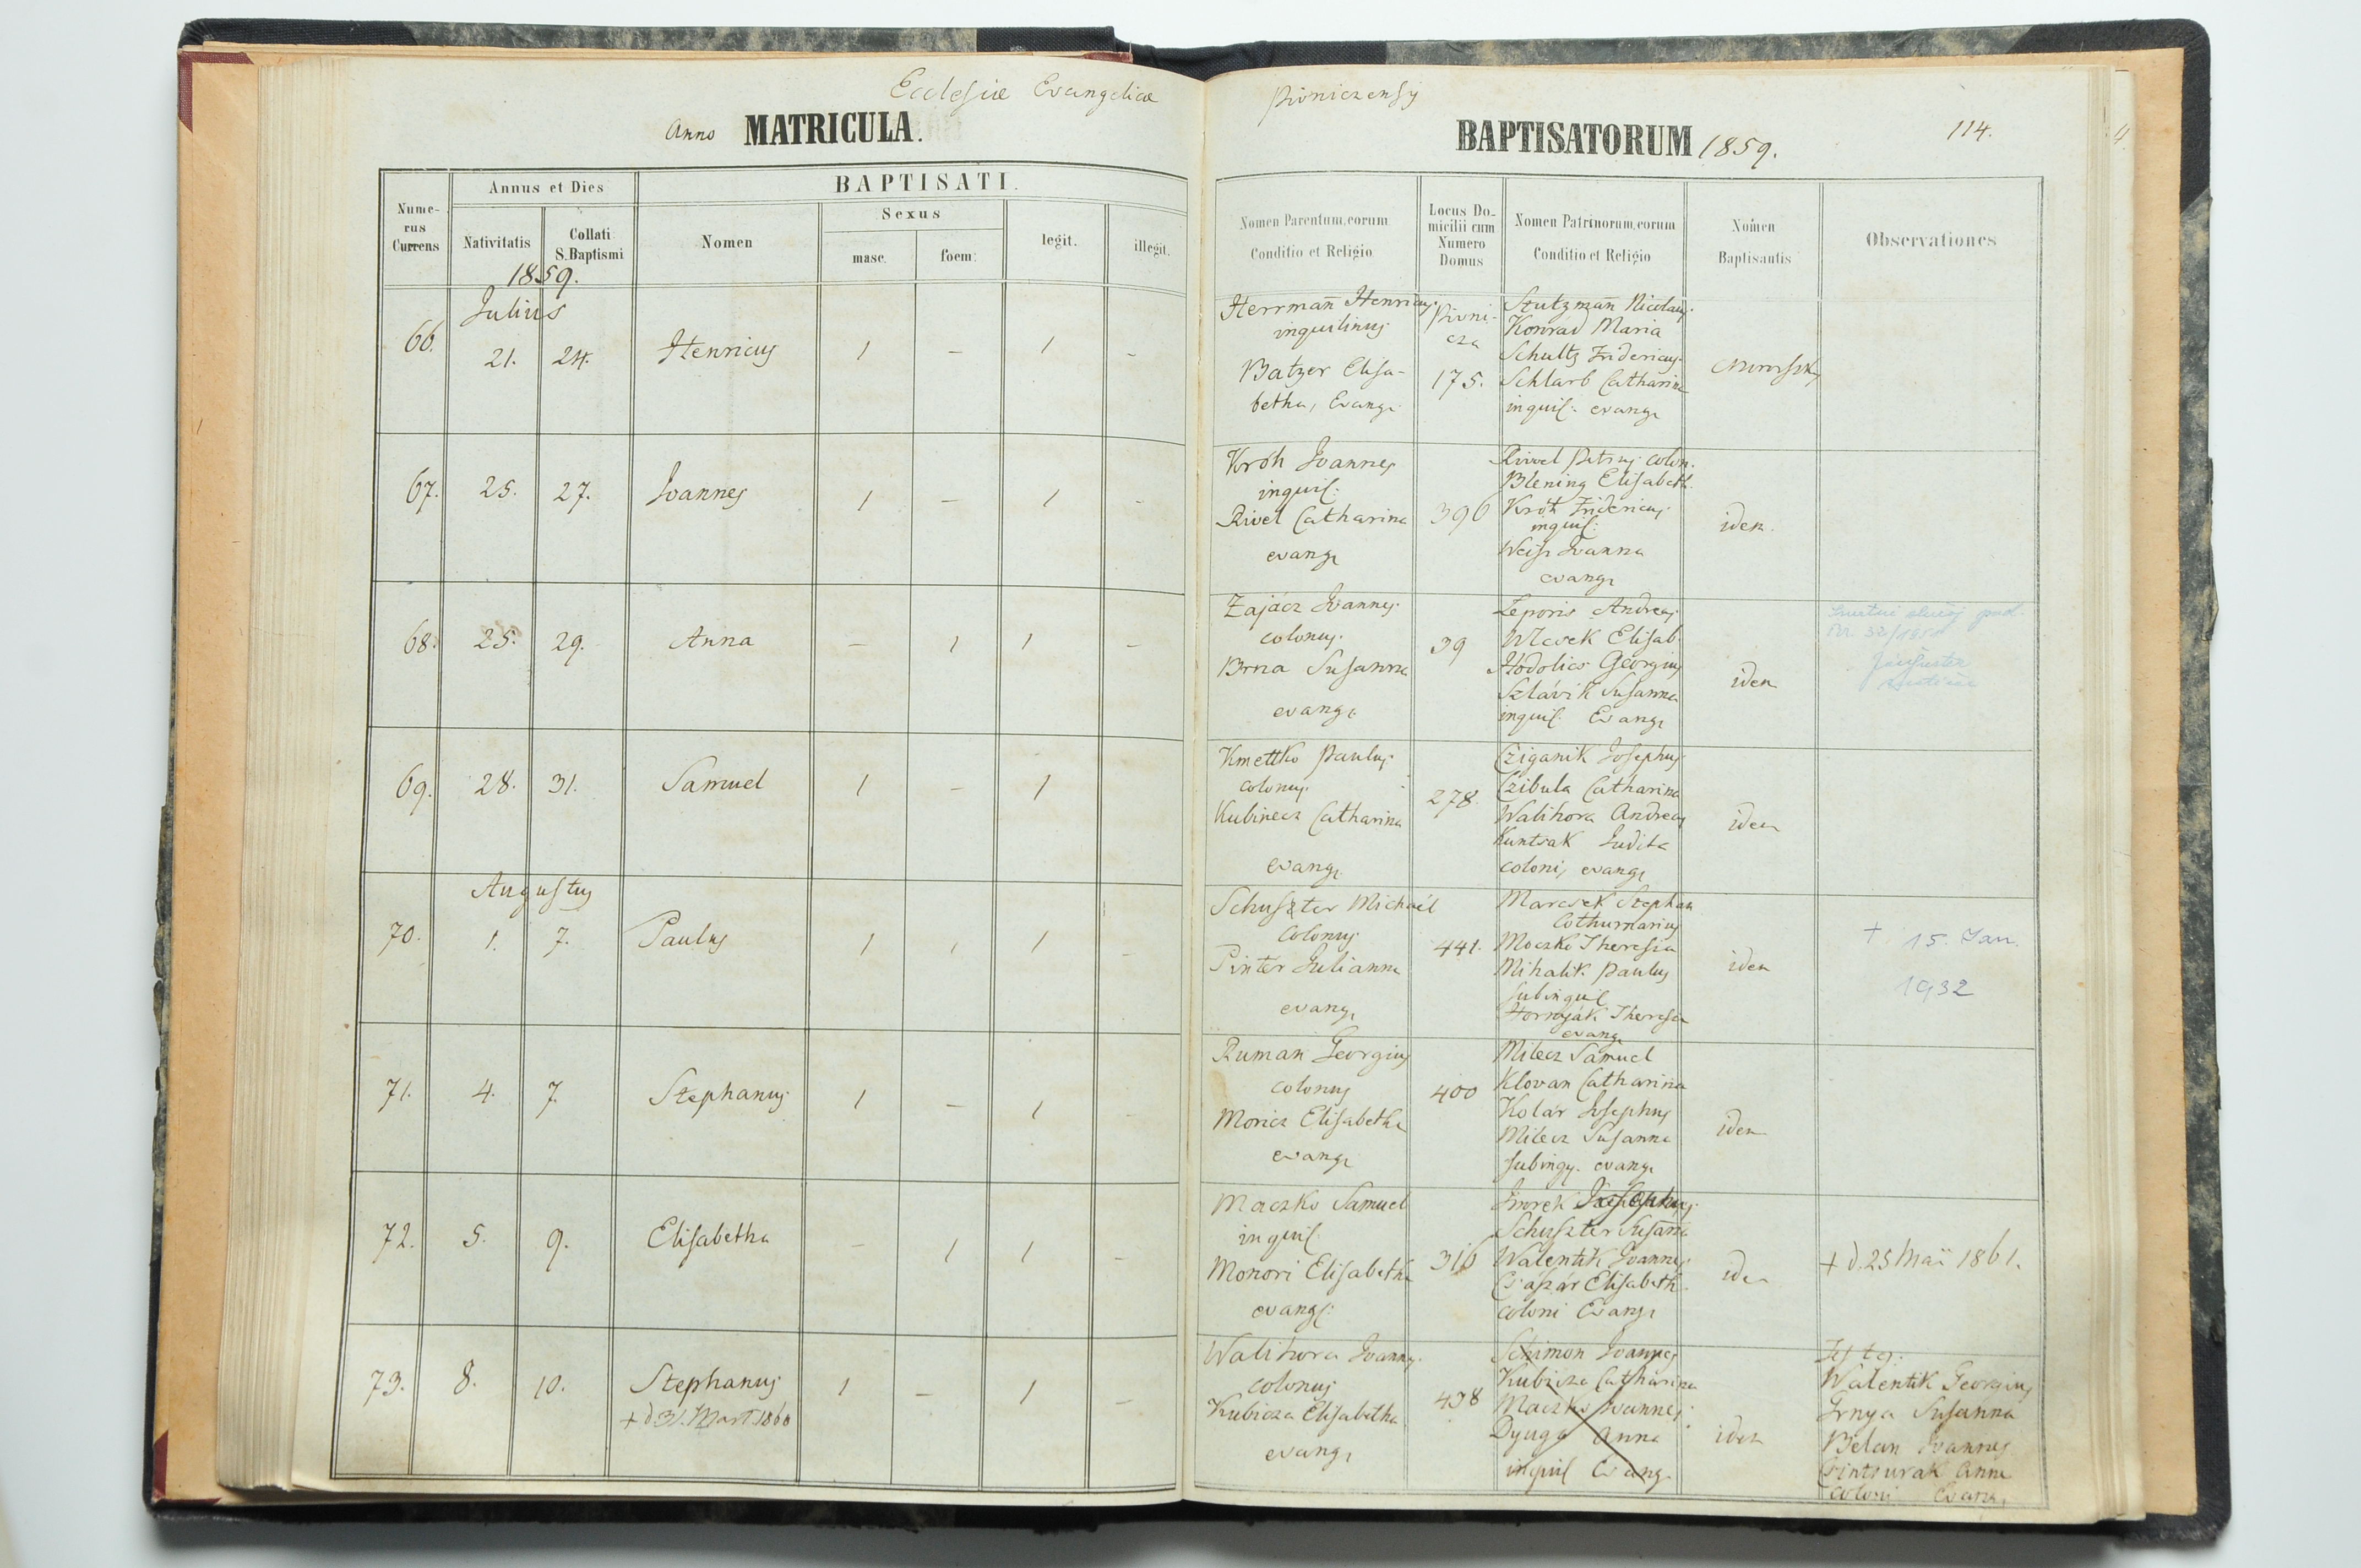 Ecclesiæ Evangelicæ Pivniczensy
Anno MATRICULA. BAPTISATORUM 1859.
114.
Numerus Currens
Annus et Dies
Nativitatis
Collati S. Baptismi
1859.
BAPTISATI.
Nomen
Sexus
masc.
foem.
legit.
illegit.
Nomen Parentum, eorum
Conditio et Religio
Locus Do-
micilii cum
Numero
Domus
Nomen Patrinorum, eorum
Conditio et Religio
Nomen
Baptisantis
Observationes
Julius
66. 21. 24. Henricus 1 – 1 –
Herrman̄ Henricus
inquilinus
Batzer Elisa-
betha, Evang.
Pivni-
cza
175.
Stutzman̄ Nicolaus
Konrád Maria
Schultz Fridericus
Schlarb Catharina
inquil. evang.
67. 25. 27. Joannes 1 – 1 –
Kroh Joannes
inquil.
Rivel Catharina
evang.
396
Rivel Petrus colon.
Blening Elisabeth.
Kroh Fridericus
inquil.
Weiss Joanna
evang.
idem
68. 25. 29. Anna – 1 1 –
Zajácz Joannes
colonus
Brna Susanna
evang.
39
Leporis Andreas
Wlcsek Elisab.
Hodolics Georgius
Szlávik Susanna
inquil. Evang.
idem
69. 28. 31. Samuel 1 – 1
Kmettko Paulus
colonus
Kubinecz Catharina
evang.
278.
Cziganik Josephus
Czibula Catharina
Walihora Andreas
Kuntsak Judita
coloni, evang.
idem
Augustus
70. 1. 7. Paulus 1 , 1 –
Schuszter Michaél
colonus
Pinter Julianna
evang.
441.
Marcsek Stephan
Cothurnarius
Moczko Theresia
Mihalik Paulus
subinquil
Hornyák Theresia
evang.
idem
+ 15. Jan.
1932
71. 4. 7. Stephanus 1 – 1
Ruman Georgius
colonus
Moricz Elisabetha
evang.
400
Milecz Samuel
Klovan Catharina
Kolár Josephus
Milecz Susanna
subinq. evang.
idem
72. 5. 9. Elisabetha – 1 1 –
Maczko Samuel
inquil.
Monori Elisabetha
evang.
316
Josephus
Schuszter Susan̄a
Walentik Joannes
Császár Elisabeth.
coloni Evang.
idem
+ d. 25 Maii 1861.
73. 8. 10. Stephanus 1 – 1 –
+ d. 31. Mart. 1860
Walihora Joannes
colonus
Kubicza Elisabetha
evang.
438
Schimon Joannes
Kubicza Catharina
Maczko Joannes
Dyuga Anna
inquil Evang.
idem
Testes:
Walentik Georgius
Grnya Susanna
Belan Joannes
Csintsurak Anna
coloni Evang.